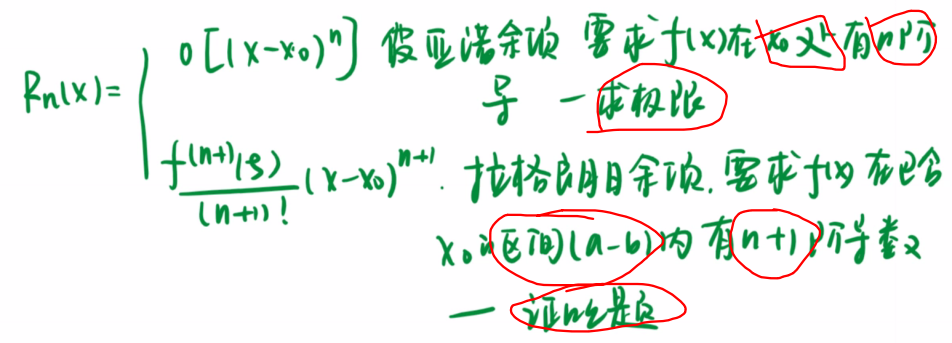 Rn(x)= { o[(x-x₀)ⁿ] 佩亚诺余项 要求f(x)在x₀处有n阶可
导 — 求极限
f⁽ⁿ⁺¹⁾(ξ)/(n+1)! (x-x₀)ⁿ⁺¹. 拉格朗日余项. 要求f(x)在包含
x₀的区间(a-b)内有n+1阶导数
—